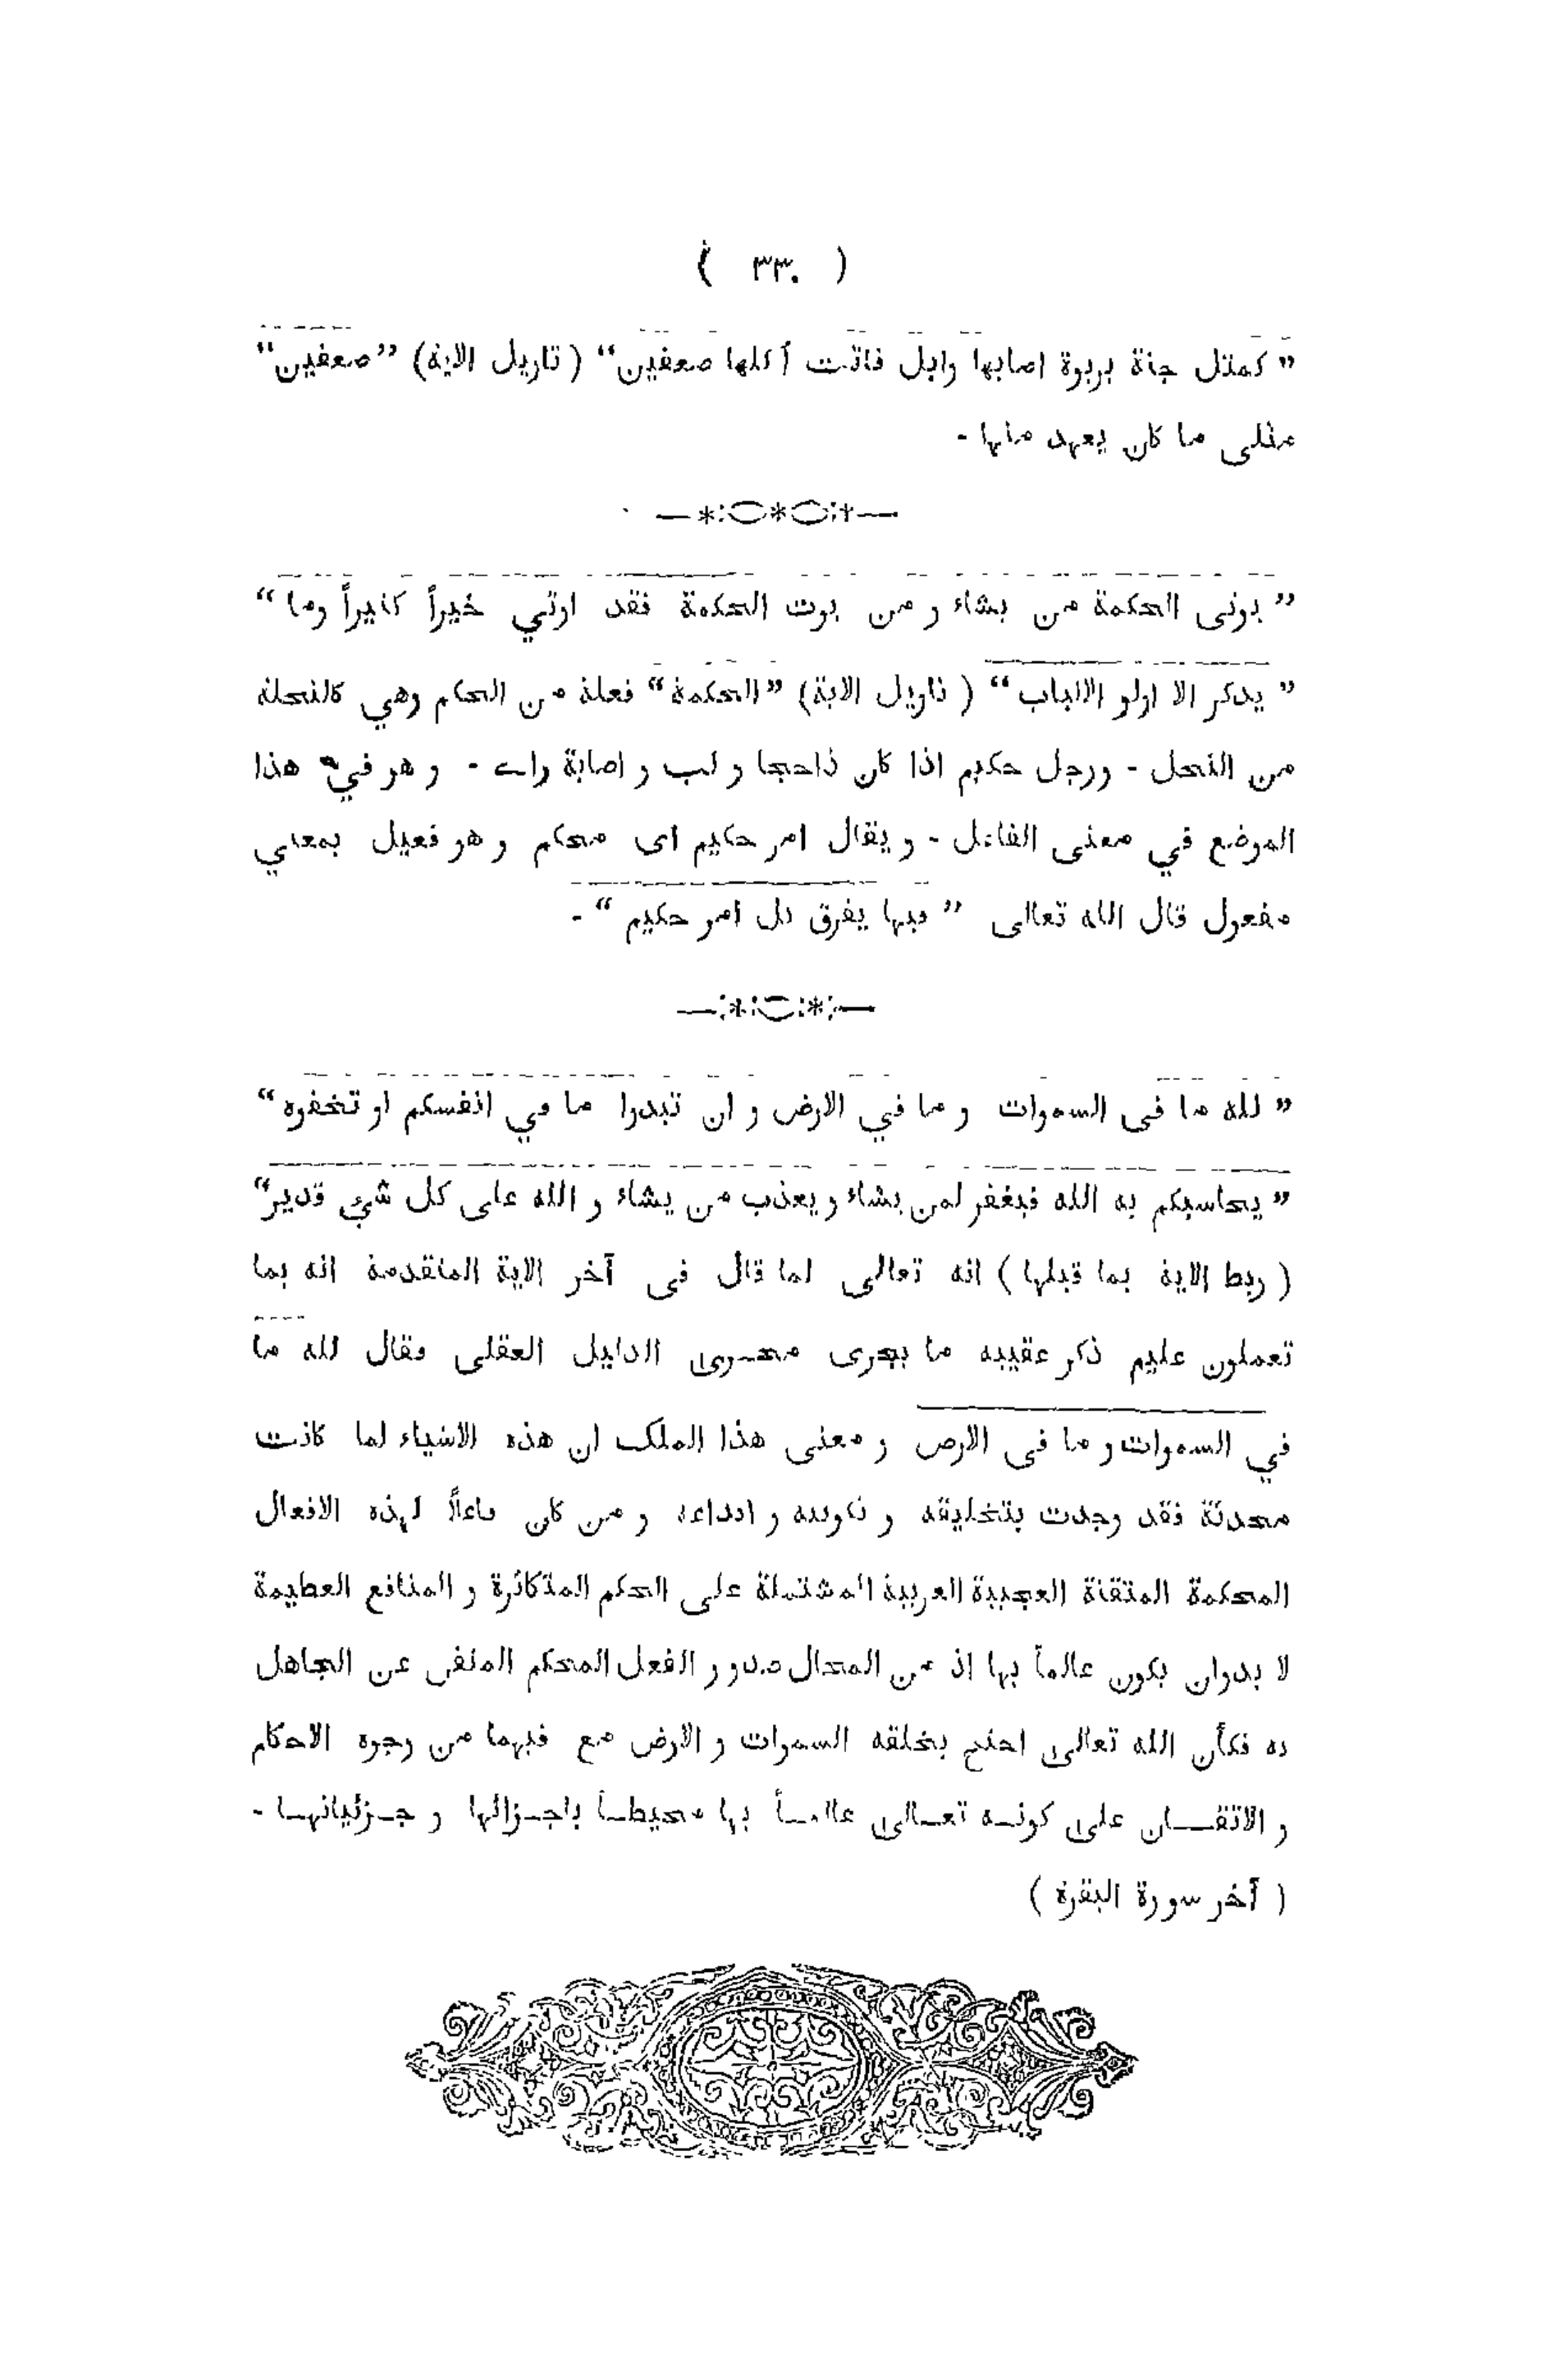 ( ٣٣٠ )
” كمثل جنة بربوة اصابها وابل فاتت أكلها ضعفين“ ( تاويل الاية) ”ضعفين“
مثلى ما كان يعهد منها -
” يوتى الحكمة من يشاء و من يوت الحكمة فقد اوتي خيراً كثيراً وما “
” يذكر الا اولو الالباب “ ( تاويل الاية) ”الحكمة“ فعلة من الحكم وهي كالنحلة
من النحل - ورجل حكيم اذا كان ذاحجا و لب و اصابة راے - و هو في هذا
الموضع في معنى الفاعل - و يقال امر حكيم اى محكم و هو فعيل بمعني
مفعول قال الله تعالى ” فيها يفرق كل امر حكيم “ -
” لله ما فى السموات و ما في الارض و ان تبدوا ما في انفسكم او تخفوه “
” يحاسبكم به الله فيغفر لمن يشاء و يعذب من يشاء و الله على كل شي قدير“
( ربط الاية بما قبلها ) انه تعالى لما قال فى آخر الاية المتقدمة انه بما
تعملون عليم ذكر عقيبه ما يجرى مجــرى الدليل العقلى فقال لله ما
في السموات و ما فى الارض و معنى هذا الملک ان هذه الاشياء لما كانت
محدثة فقد وجدت بتخليقه و تكوينه و ابداعه و من كان فاعلاً لهذه الافعال
المحكمة المتقنة العجيبة الغريبة المشتملة على الحكم المتكاثرة و المنافع العظيمة
لا بدوان يكون عالماً بها اذ من المحال صدور الفعل المحكم المتقن عن الجاهل
به فكأن الله تعالى احتج بخلقه السموات و الارض مع فيهما من وجوه الاحكام
و الاتقـــان على كونــه تعــالى عالمــاً بها محيطــاً باجــزائها و جــزئياتهــا -
( آخر سورة البقرة )